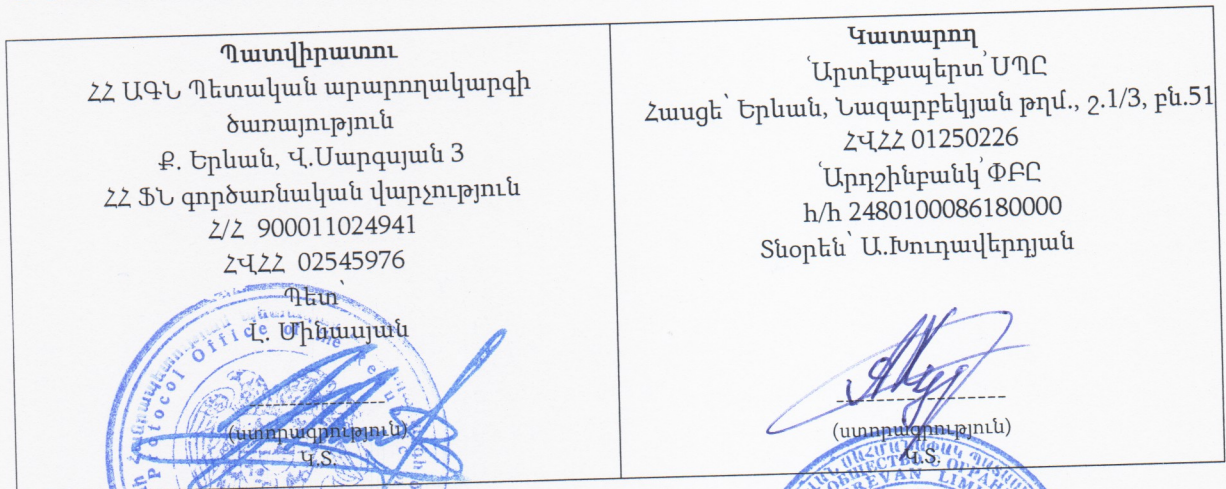 Պատվիրատու
ՀՀ ԱԳՆ Պետական արարողակարգի
ծառայություն
Ք. Երևան, Վ.Սարգսյան 3
ՀՀ ՖՆ գործառնական վարչություն
Հ/Հ 900011024941
ՀՎՀՀ 02545976
Պետ՝
Լ. Մինասյան
Protocol Office of the
(ստորագրություն)
Կ.Տ.
Կատարող
՛Արտէքսպերտ՛ ՍՊԸ
Հասցե՝ Երևան, Նազարբեկյան թղմ., շ.1/3, բն.51
ՀՎՀՀ 01250226
՛Արդշինբանկ՛ ՓԲԸ
հ/հ 2480100086180000
Տնօրեն՝ Ա.Խուդավերդյան
(ստորագրություն)
Կ.Տ.